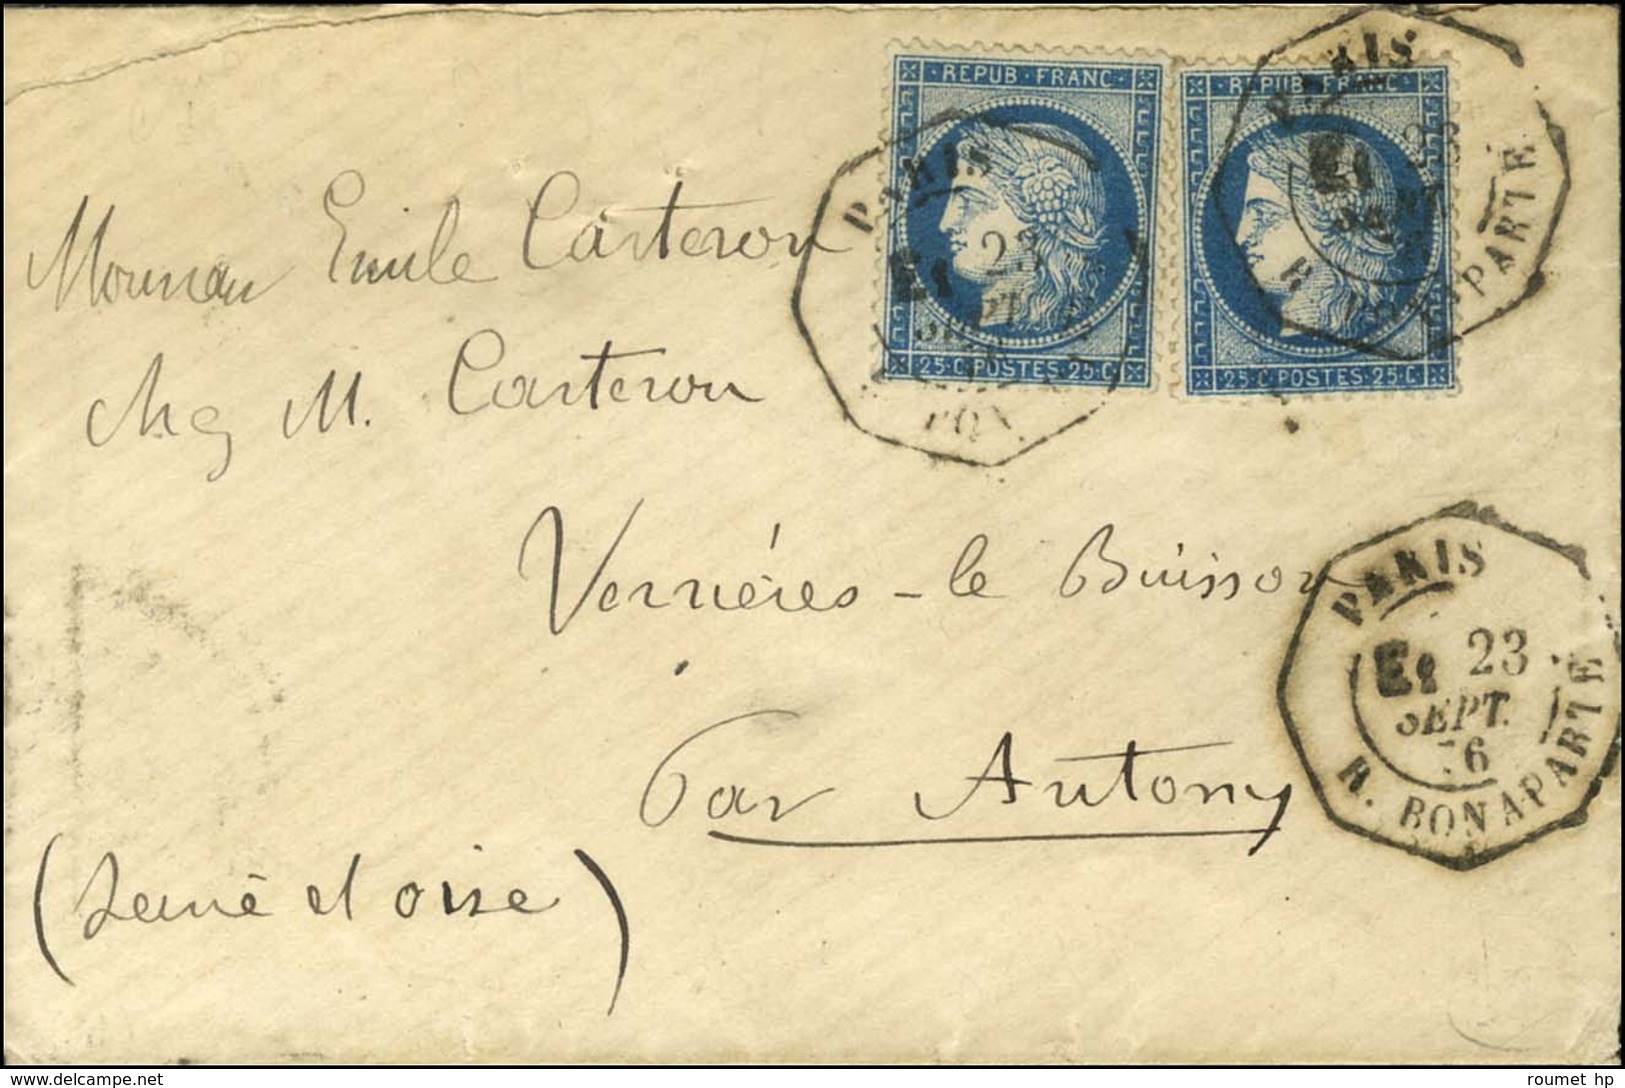 REPUB·FRANC
25·C·POSTES·25·C
PARIS
E1 23
SEPT.
REPUB·FRANC
25·C·POSTES·25·C
PARIS
E1 23
SEPT.
R. BONAPARTE
Monsieur Emile Carteron
chez M. Carteron
Verrières-le Buisson
Par Antony
(Seine et Oise)
PARIS
E1 23
SEPT.
76
R. BONAPARTE
www.delcampe.net
roumet hp